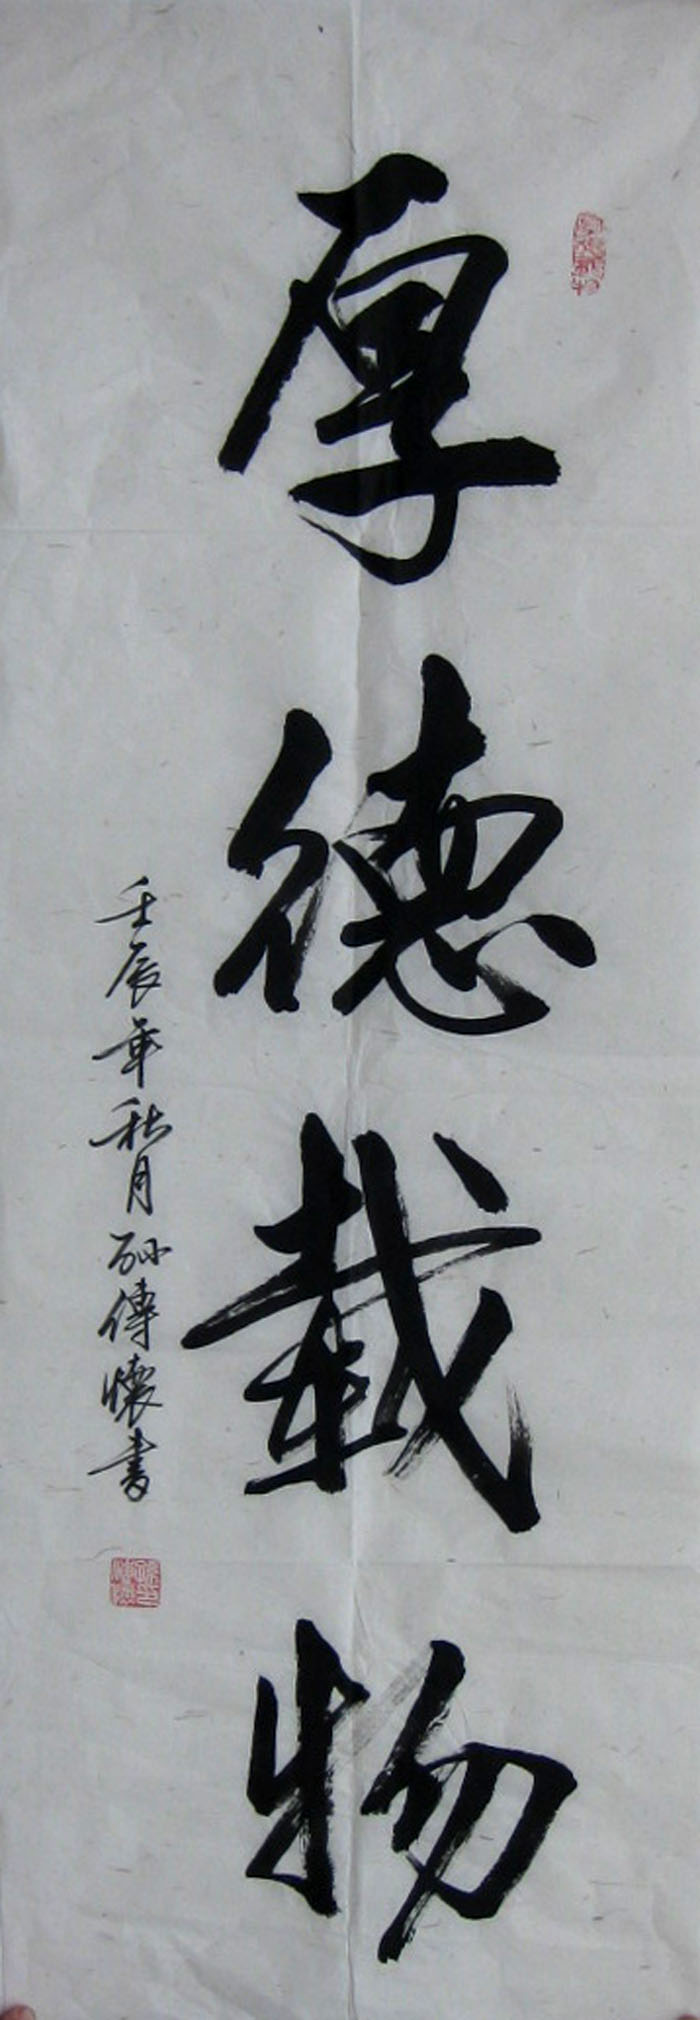 厚德載物
壬辰年秋月孙傳懷書